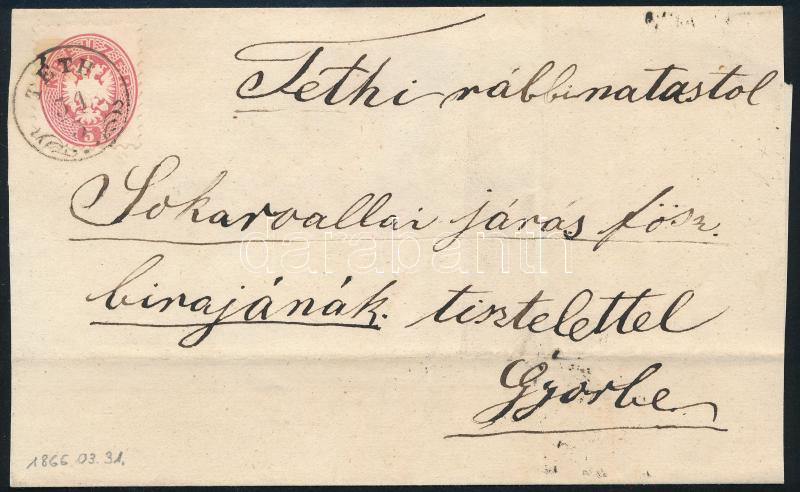 TÉTH
5
Téthi rábbinatastol
Sokaroallai járás fősz.
birajának. tisztelettel
Gyorbe
darabanth
1866 03.31.